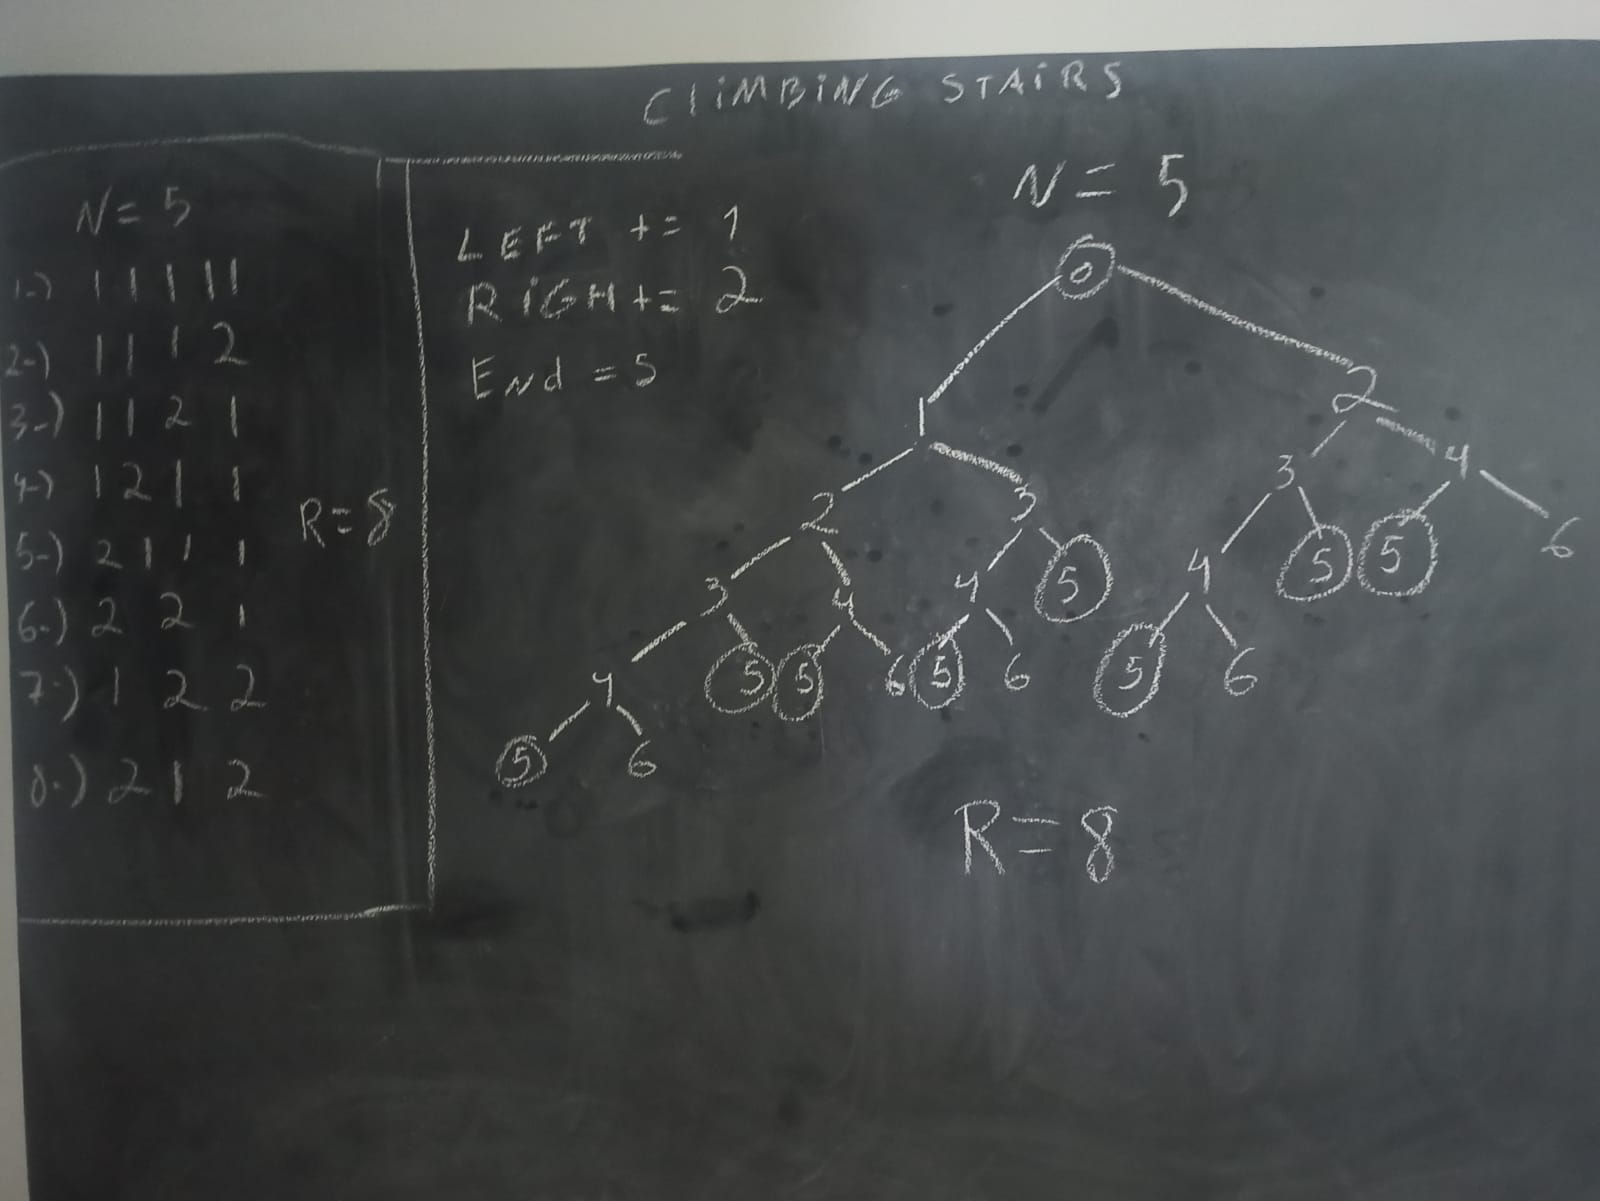 CLIMBING STAIRS
N = 5
1-) 1 1 1 1 1
2-) 1 1 1 2
3-) 1 1 2 1
4-) 1 2 1 1
5-) 2 1 1 1
6-) 2 2 1
7-) 1 2 2
8-) 2 1 2
R=8
LEFT += 1
RIGH += 2
End = 5
N = 5
0
1 2
2 3 3 4
3 4 4 5 4 5 5 6
4 5 5 6 5 6 5 6
5 6
R=8